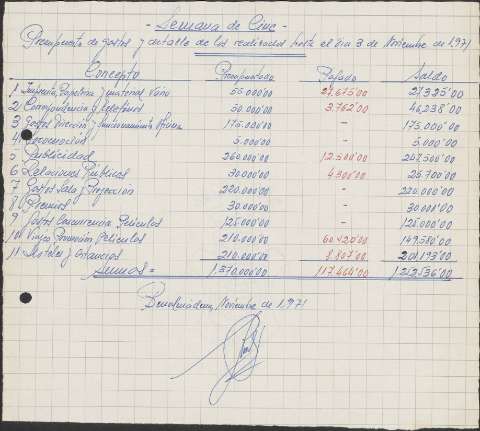 - Semana de Cine -
Presupuesto de gastos y detalle de los realizados hasta el día 3 de Noviembre de 1971
Concepto Presupuestado Pagado Saldo
1 Imprenta, Papeleria y material Vario 55.000'00 27.675'00 27.325'00
2) Correspondencia y Telefonos 50.000'00 3.762'00 46,238'00
3 Gastos Dirección y funcionamiento Oficina 175.000'00 - 175.000'00
4 5.000'00 - 5.000'00
5 Publicidad 260.000'00 12.500'00 247,500'00
6 Relaciones Publicas 30.000'00 4.300'00 25,700'00
7 Gastos Sala y Proyección 220.000'00 - 220.000'00
8 Premios 30.000'00 - 30.000'00
9 Gastos Concurrencia Peliculas 125.000'00 - 125.000'00
10) Viajes Promoción, Peliculas 210.000'00 60.420'00 149.580'00
11 Hoteles y estancias 210.000'00 8.807'00 201,193'00
Sumas = 1,370.000'00 117,464'00 1,252,536'00
Benalmádena, Noviembre de 1,971